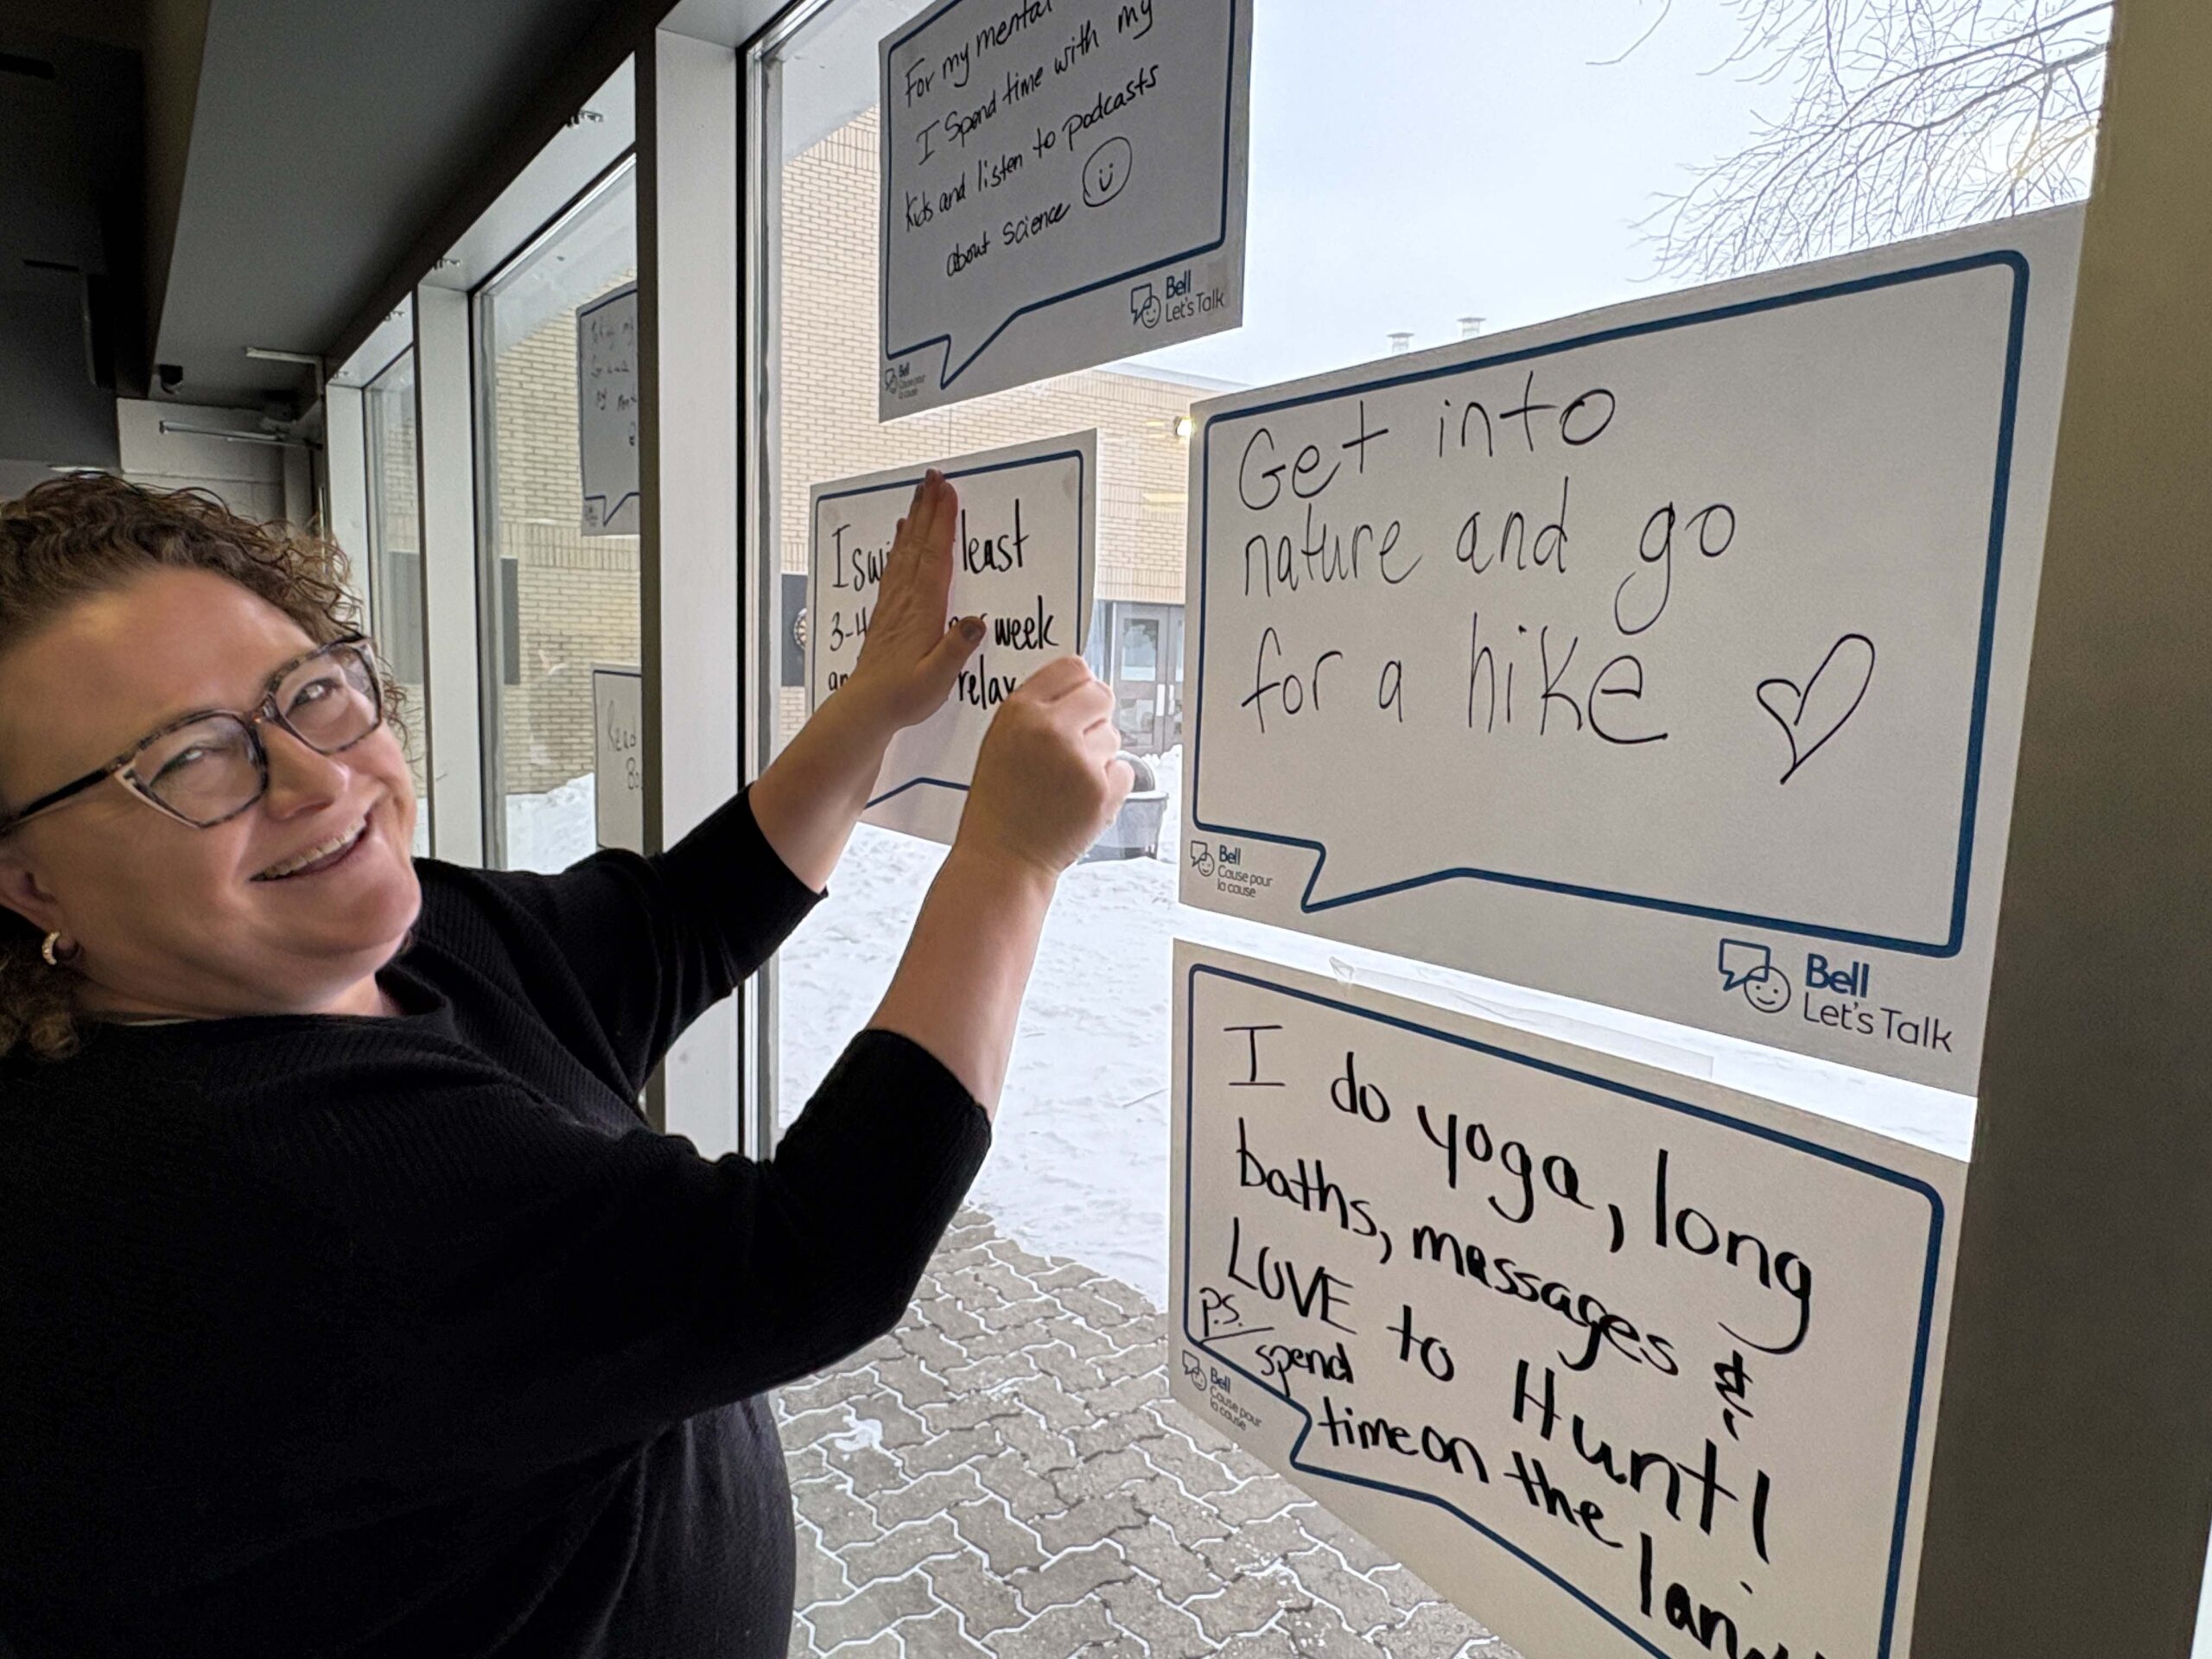 For my mental
I Spend time with my
kids and listen to podcasts
about science
Bell
Let's Talk
Bell
Cause pour
la cause
I least
3-4 week
relax
Get into
nature and go
for a hike
Bell
Cause pour
la cause
Bell
Let's Talk
I do yoga, long
baths, messages &
LOVE to Hunt!
p.s. spend
time on the
Bell
Cause pour
la cause
Read